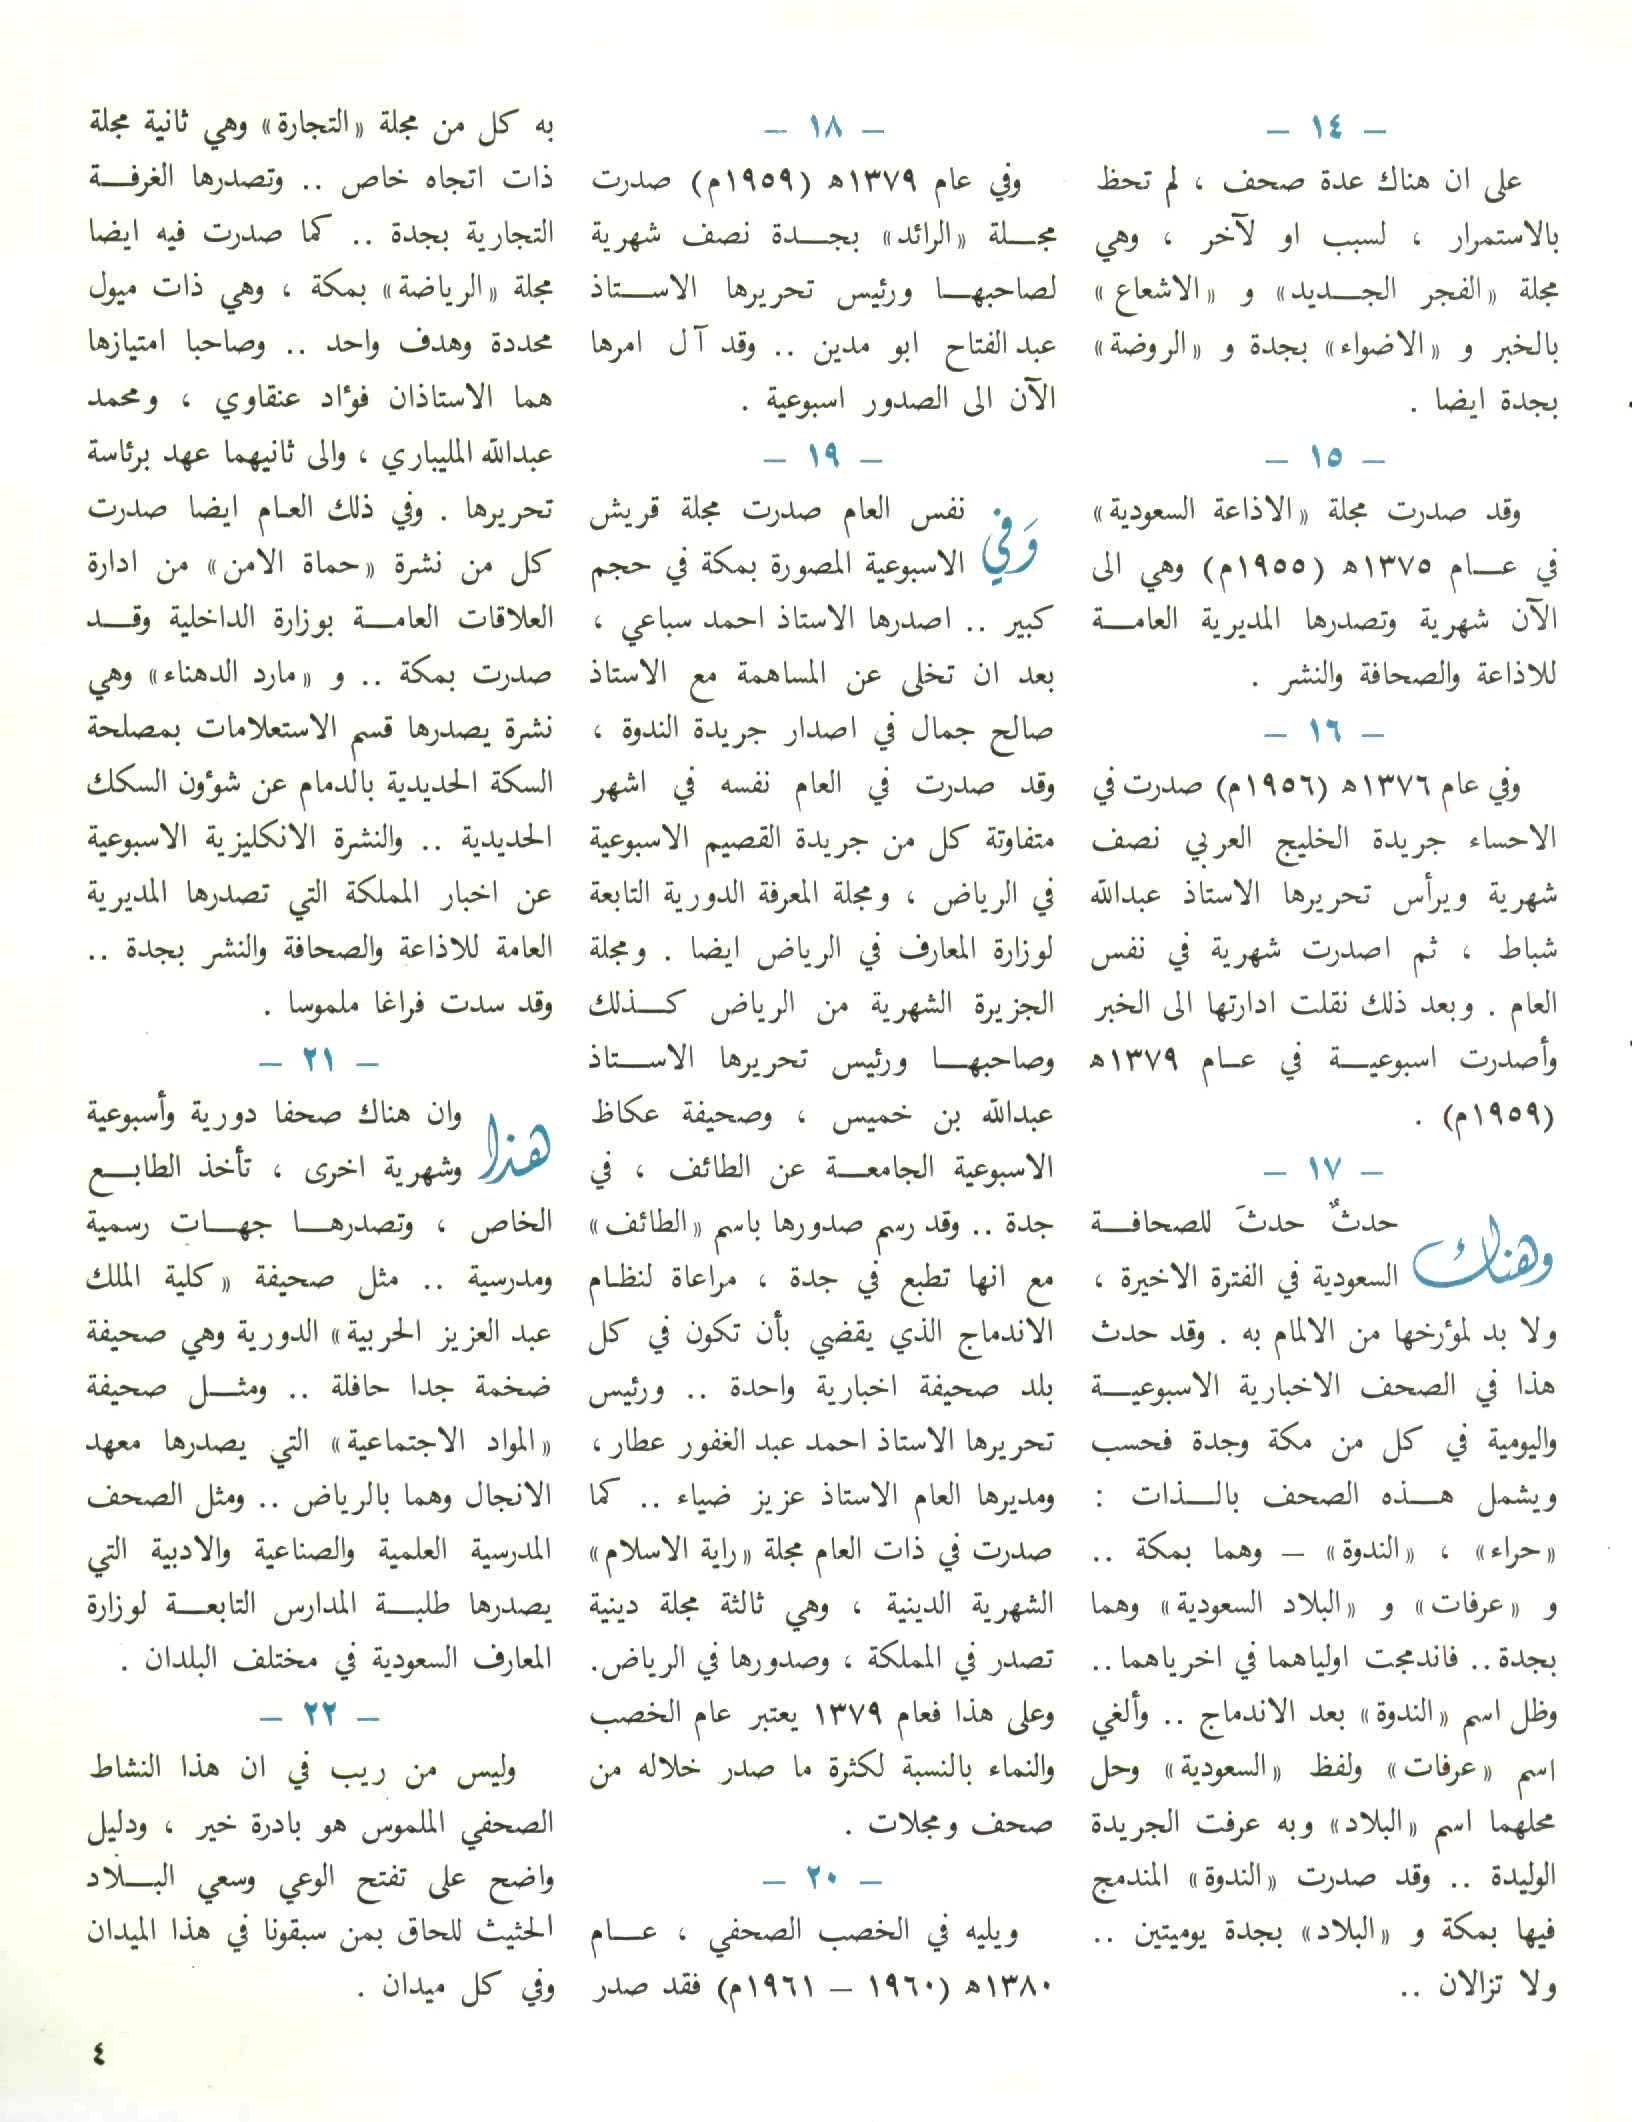 – ١٤ –
على ان هناك عدة صحف ، لم تحظ
بالاستمرار ، لسبب او لآخر ، وهي
مجلة «الفجر الجـــديد» و «الاشعاع»
بالخبر و «الاضواء» بجدة و «الروضة»
بجدة ايضا .
– ١٥ –
وقد صدرت مجلة «الاذاعة السعودية»
في عـــام ١٣٧٥ه (١٩٥٥م) وهي الى
الآن شهرية وتصدرها المديرية العامـــة
للاذاعة والصحافة والنشر .
– ١٦ –
وفي عام ١٣٧٦ه (١٩٥٦م) صدرت في
الاحساء جريدة الخليج العربي نصف
شهرية ويرأس تحريرها الاستاذ عبدالله
شباط ، ثم اصدرت شهرية في نفس
العام . وبعد ذلك نقلت ادارتها الى الخبر
وأصدرت اسبوعيـــة في عـــام ١٣٧٩ه
(١٩٥٩م) .
– ١٧ –
وهناك حدثٌ حدثَ للصحافـــة
السعودية في الفترة الاخيرة ،
ولا بد لمؤرخها من الالمام به . وقد حدث
هذا في الصحف الاخبارية الاسبوعيـــة
واليومية في كل من مكة وجدة فحسب
ويشمل هـــذه الصحف بالـــذات :
«حراء» ، «الندوة» – وهما بمكة ..
و «عرفات» و «البلاد السعودية» وهما
بجدة .. فاندمجت اولياهما في اخرياهما ..
وظل اسم «الندوة» بعد الاندماج .. وألغي
اسم «عرفات» ولفظ «السعودية» وحل
محلهما اسم «البلاد» وبه عرفت الجريدة
الوليدة .. وقد صدرت «الندوة» المندمج
فيها بمكة و «البلاد» بجدة يوميتين ..
ولا تزالان ..
– ١٨ –
وفي عام ١٣٧٩ه (١٩٥٩م) صدرت
مجـــلة «الرائد» بجـــدة نصف شهرية
لصاحبهـــا ورئيس تحريرها الاســـتاذ
عبد الفتاح ابو مدين .. وقد آل امرها
الآن الى الصدور اسبوعية .
– ١٩ –
وَفي نفس العام صدرت مجلة قريش
الاسبوعية المصورة بمكة في حجم
كبير .. اصدرها الاستاذ احمد سباعي ،
بعد ان تخلى عن المساهمة مع الاستاذ
صالح جمال في اصدار جريدة الندوة ،
وقد صدرت في العام نفسه في اشهر
متفاوتة كل من جريدة القصيم الاسبوعية
في الرياض ، ومجلة المعرفة الدورية التابعة
لوزارة المعارف في الرياض ايضا . ومجلة
الجزيرة الشهرية من الرياض كـــذلك
وصاحبهـــا ورئيس تحريرها الاســـتاذ
عبدالله بن خميس ، وصحيفة عكاظ
الاسبوعية الجامعـــة عن الطائف ، في
جدة .. وقد رسم صدورها باسم «الطائف»
مع انها تطبع في جدة ، مراعاة لنظـام
الاندماج الذي يقضي بأن تكون في كل
بلد صحيفة اخبارية واحدة .. ورئيس
تحريرها الاستاذ احمد عبد الغفور عطار ،
ومديرها العام الاستاذ عزيز ضياء .. كما
صدرت في ذات العام مجلة «راية الاسلام»
الشهرية الدينية ، وهي ثالثة مجلة دينية
تصدر في المملكة ، وصدورها في الرياض.
وعلى هذا فعام ١٣٧٩ يعتبر عام الخصب
والنماء بالنسبة لكثرة ما صدر خلاله من
صحف ومجلات .
– ٢٠ –
ويليه في الخصب الصحفي ، عـــام
١٣٨٠ه (١٩٦٠ – ١٩٦١م) فقد صدر
به كل من مجلة «التجارة» وهي ثانية مجلة
ذات اتجاه خاص .. وتصدرها الغرفـــة
التجارية بجدة .. كما صدرت فيه ايضا
مجلة «الرياضة» بمكة ، وهي ذات ميول
محددة وهدف واحد .. وصاحبا امتيازها
هما الاستاذان فؤاد عنقاوي ، ومحمد
عبدالله المليباري ، والى ثانيهما عهد برئاسة
تحريرها . وفي ذلك العـام ايضا صدرت
كل من نشرة «حماة الامن» من ادارة
العلاقات العامـــة بوزارة الداخلية وقـــد
صدرت بمكة .. و «مارد الدهناء» وهي
نشرة يصدرها قسم الاستعلامات بمصلحة
السكة الحديدية بالدمام عن شؤون السكك
الحديدية .. والنشرة الانكليزية الاسبوعية
عن اخبار المملكة التي تصدرها المديرية
العامة للاذاعة والصحافة والنشر بجدة ..
وقد سدت فراغا ملموسا .
– ٢١ –
هذا وان هناك صحفا دورية وأسبوعية
وشهرية اخرى ، تأخذ الطابـــع
الخاص ، وتصدرهـــا جهـات رسمية
ومدرسية .. مثل صحيفة «كلية الملك
عبد العزيز الحربية» الدورية وهي صحيفة
ضخمة جدا حافلة .. ومثـــل صحيفة
«المواد الاجتماعية» التي يصدرها معهد
الانجال وهما بالرياض .. ومثل الصحف
المدرسية العلمية والصناعية والادبية التي
يصدرها طلبـــة المدارس التابعـــة لوزارة
المعارف السعودية في مختلف البلدان .
– ٢٢ –
وليس من ريب في ان هذا النشاط
الصحفي الملموس هو بادرة خير ، ودليل
واضح على تفتح الوعي وسعي البـــلاد
الحثيث للحاق بمن سبقونا في هذا الميدان
وفي كل ميدان .
٤